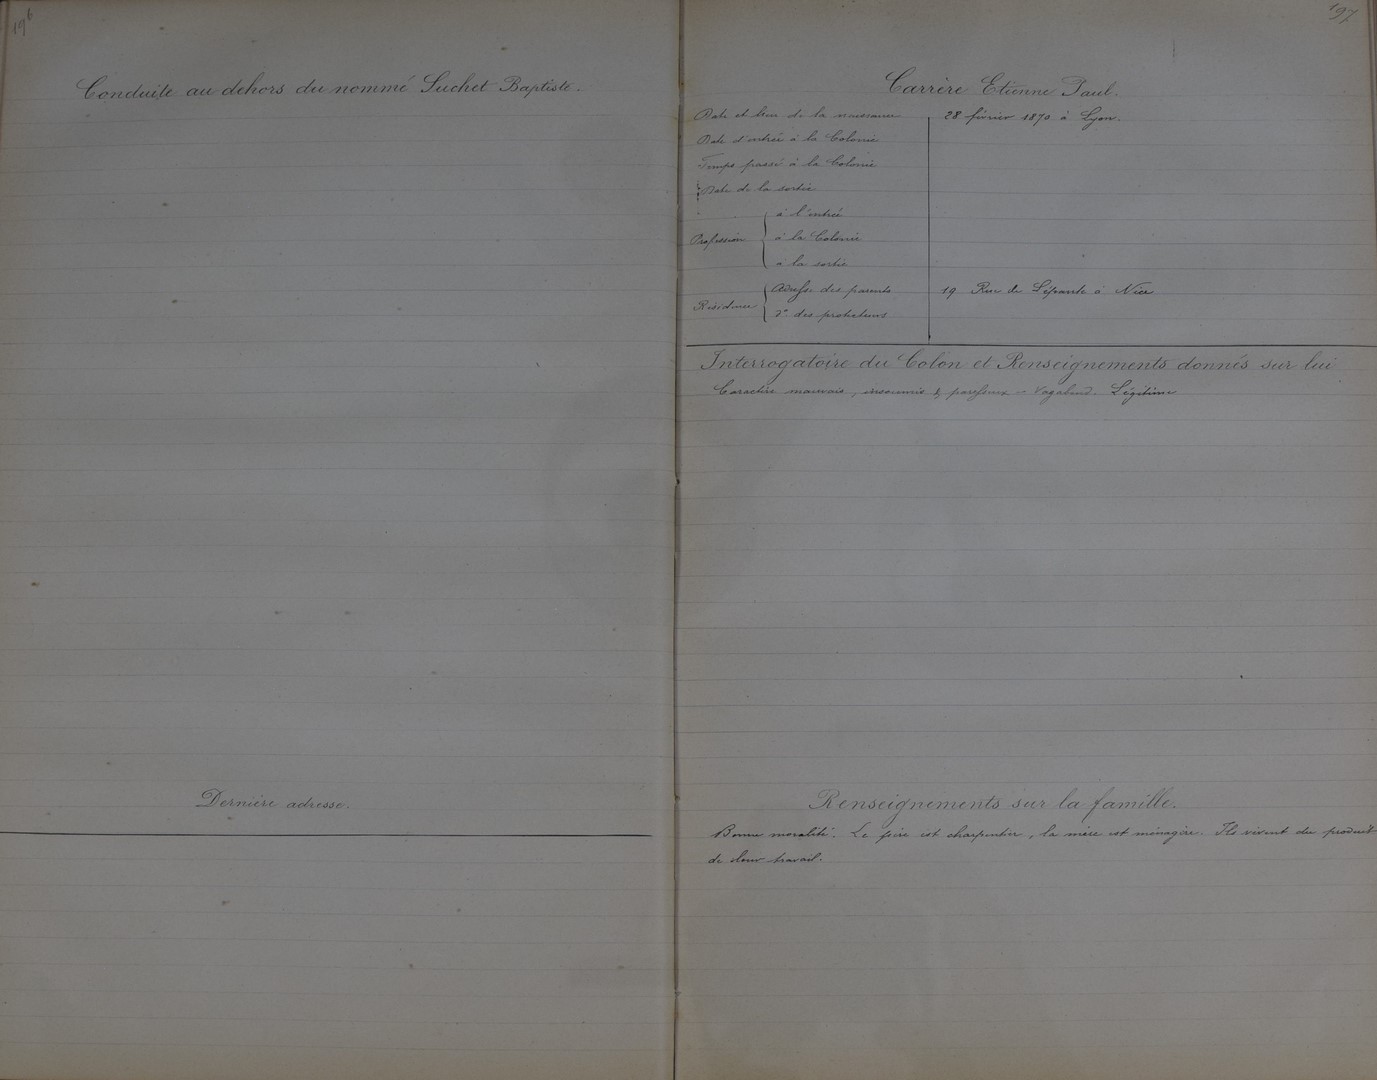 196
Conduite au dehors du nommé Suchet Baptiste.
Dernière adresse.
197
Carrère Etienne Paul.
Date et lieu de la naissance 28 février 1870 à Lyon.
Date d'entrée à la Colonie
Temps passé à la Colonie
Date de la sortie
à l'entrée
Profession à la Colonie
à la sortie
Adresse des parents 19 Rue de Lépante à Nice
Résidence
do des protecteurs
Interrogatoire du Colon et Renseignements donnés sur lui
Caractère mauvais, insoumis & paresseux - Vagabond. Légitime
Renseignements sur la famille.
Bonne moralité. Le père est charpentier, la mère est ménagère. Ils vivent du produit
de leur travail.